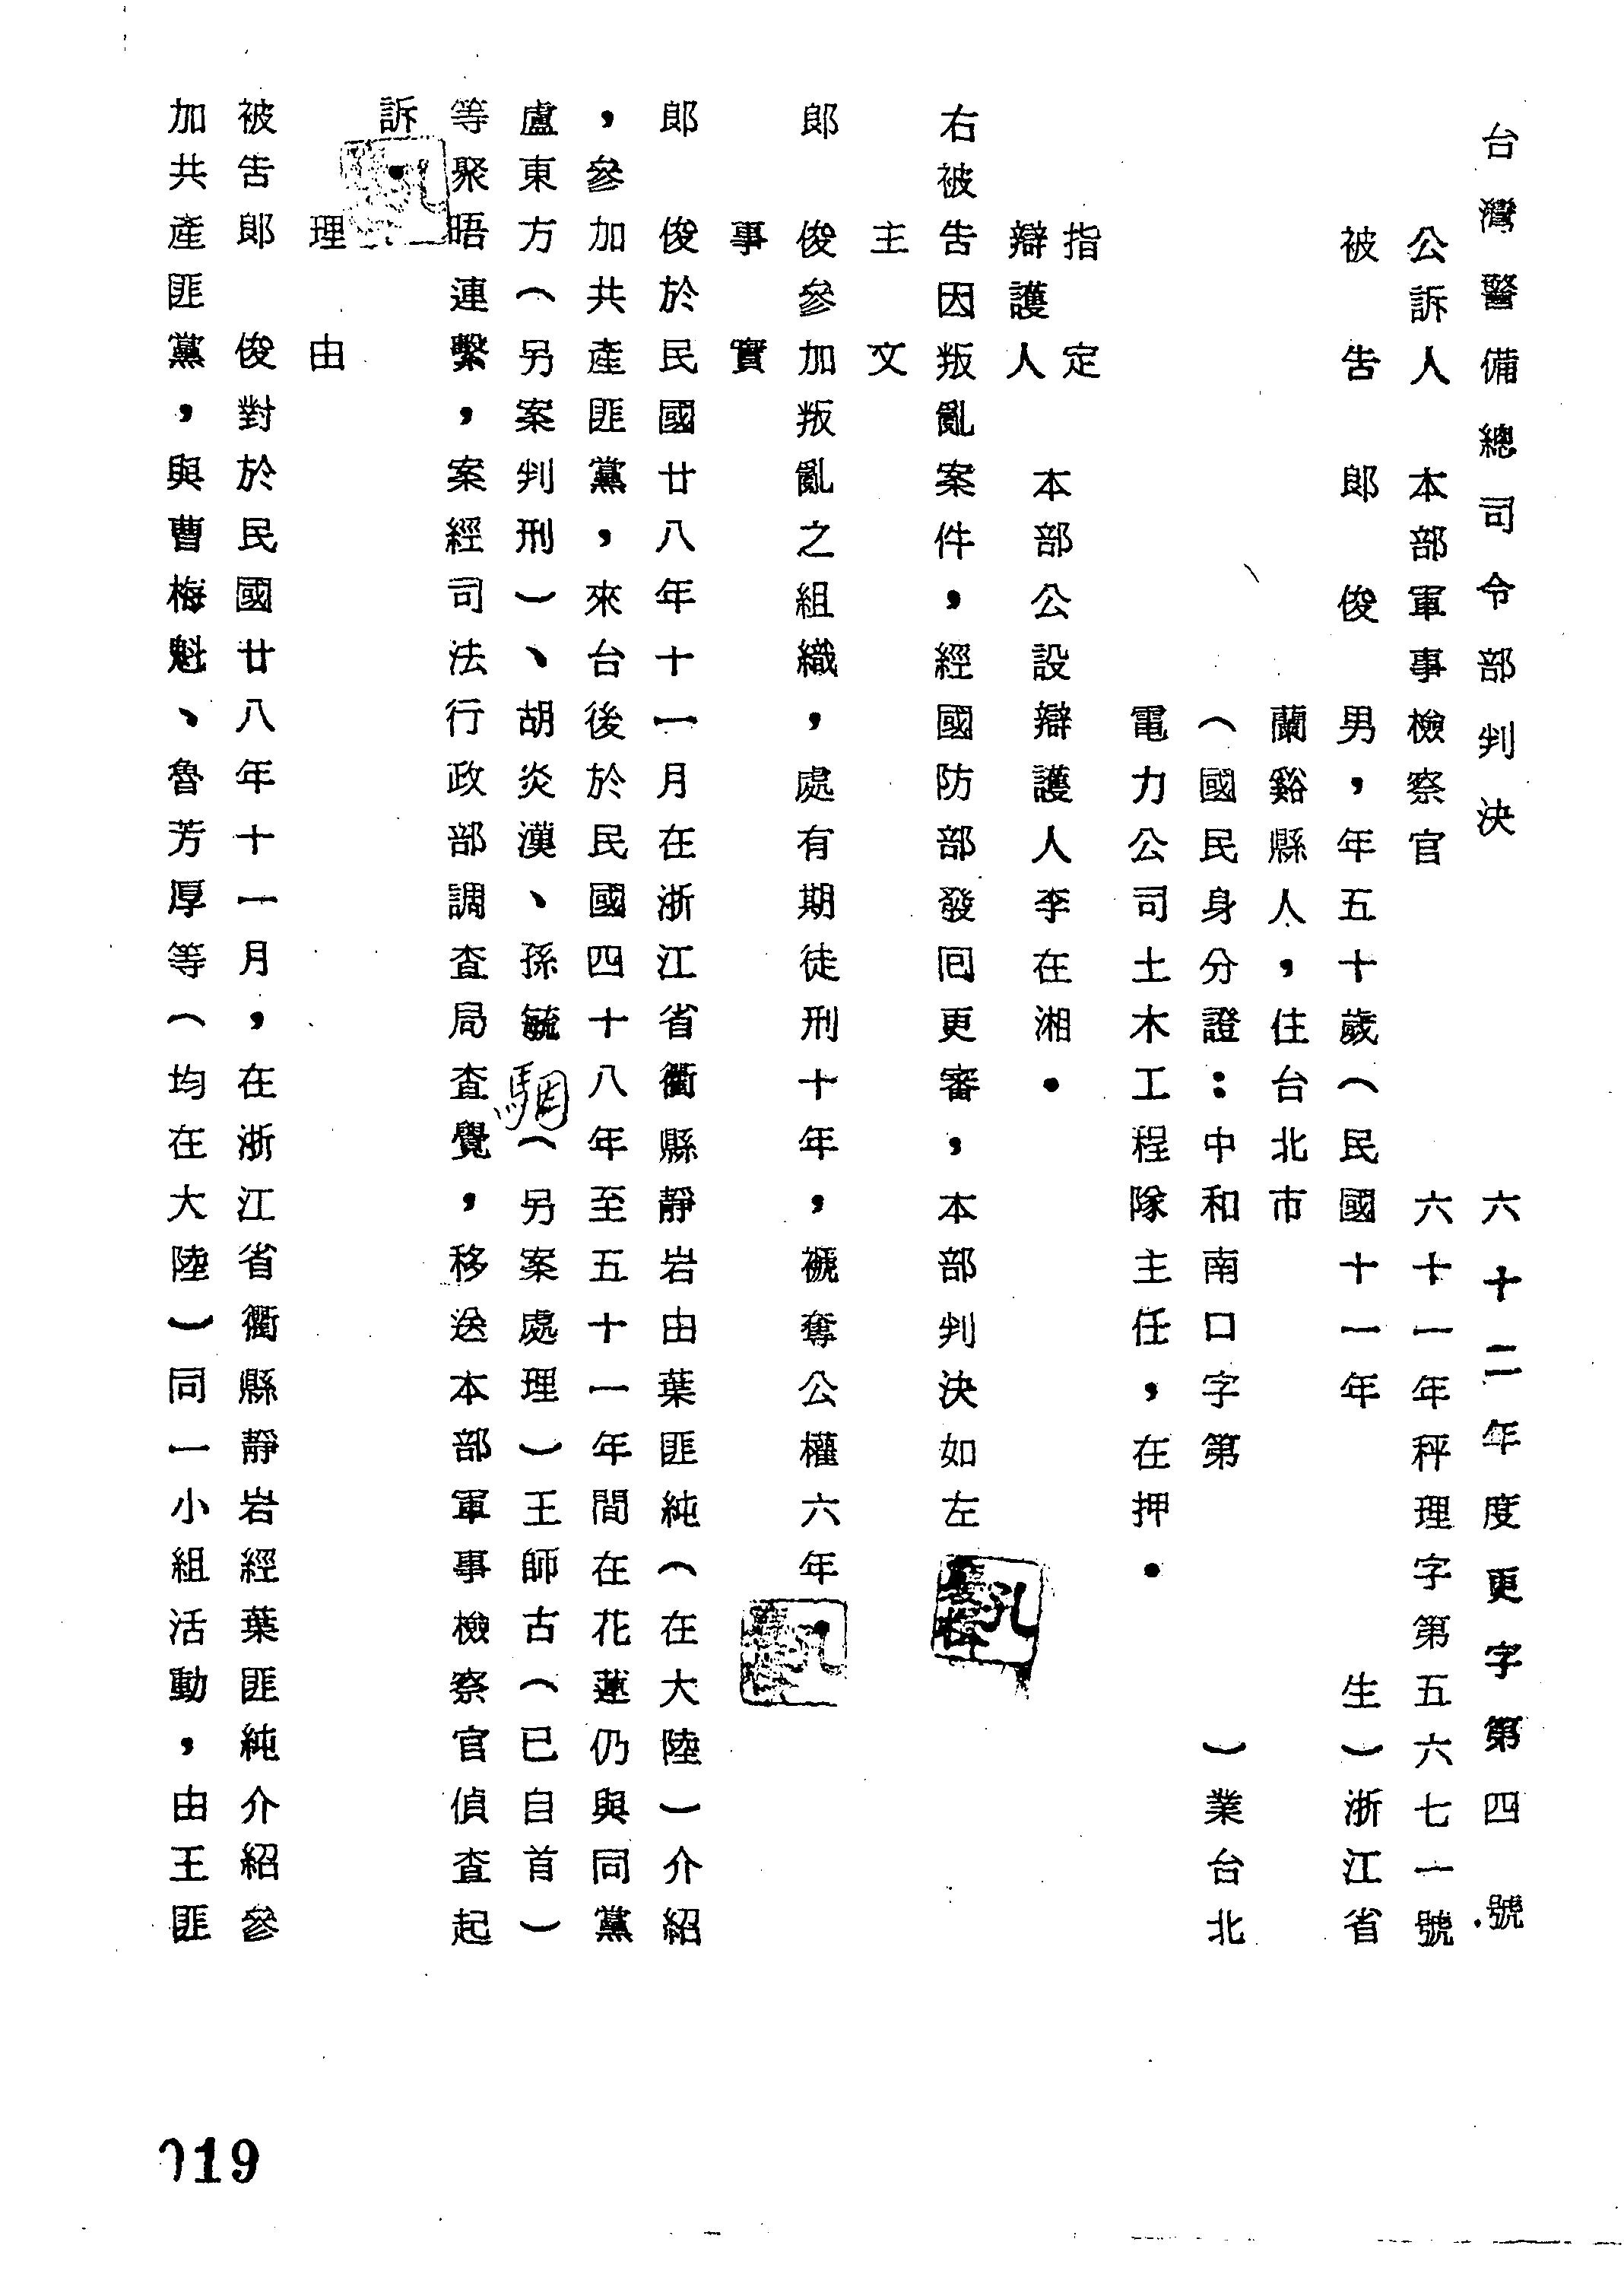 台灣警備總司令部判決　六十二年度更字第四號
公訴人　本部軍事檢察官　六十一年秤理字第五六七一號
被告　郎　俊　男，年五十歲（民國十一年　生）浙江省
蘭谿縣人，住台北市
（國民身分證：中和南口字第　）業台北
電力公司土木工程隊主任，在押。
指定
辯護人　本部公設辯護人李在湘。
右被告因叛亂案件，經國防部發回更審，本部判決如左
主文
郎　俊參加叛亂之組織，處有期徒刑十年，褫奪公權六年。
事實
郎　俊於民國廿八年十一月在浙江省衢縣靜岩由葉匪純（在大陸）介紹
，參加共產匪黨，來台後於民國四十八年至五十一年間在花蓮仍與同黨
盧東方（另案判刑）、胡炎漢、孫毓駰（另案處理）王師古（已自首）
等聚晤連繫，案經司法行政部調查局查覺，移送本部軍事檢察官偵查起
訴。
理由
被告郎　俊對於民國廿八年十一月，在浙江省衢縣靜岩經葉匪純介紹參
加共產匪黨，與曹梅魁、魯芳厚等（均在大陸）同一小組活動，由王匪
019